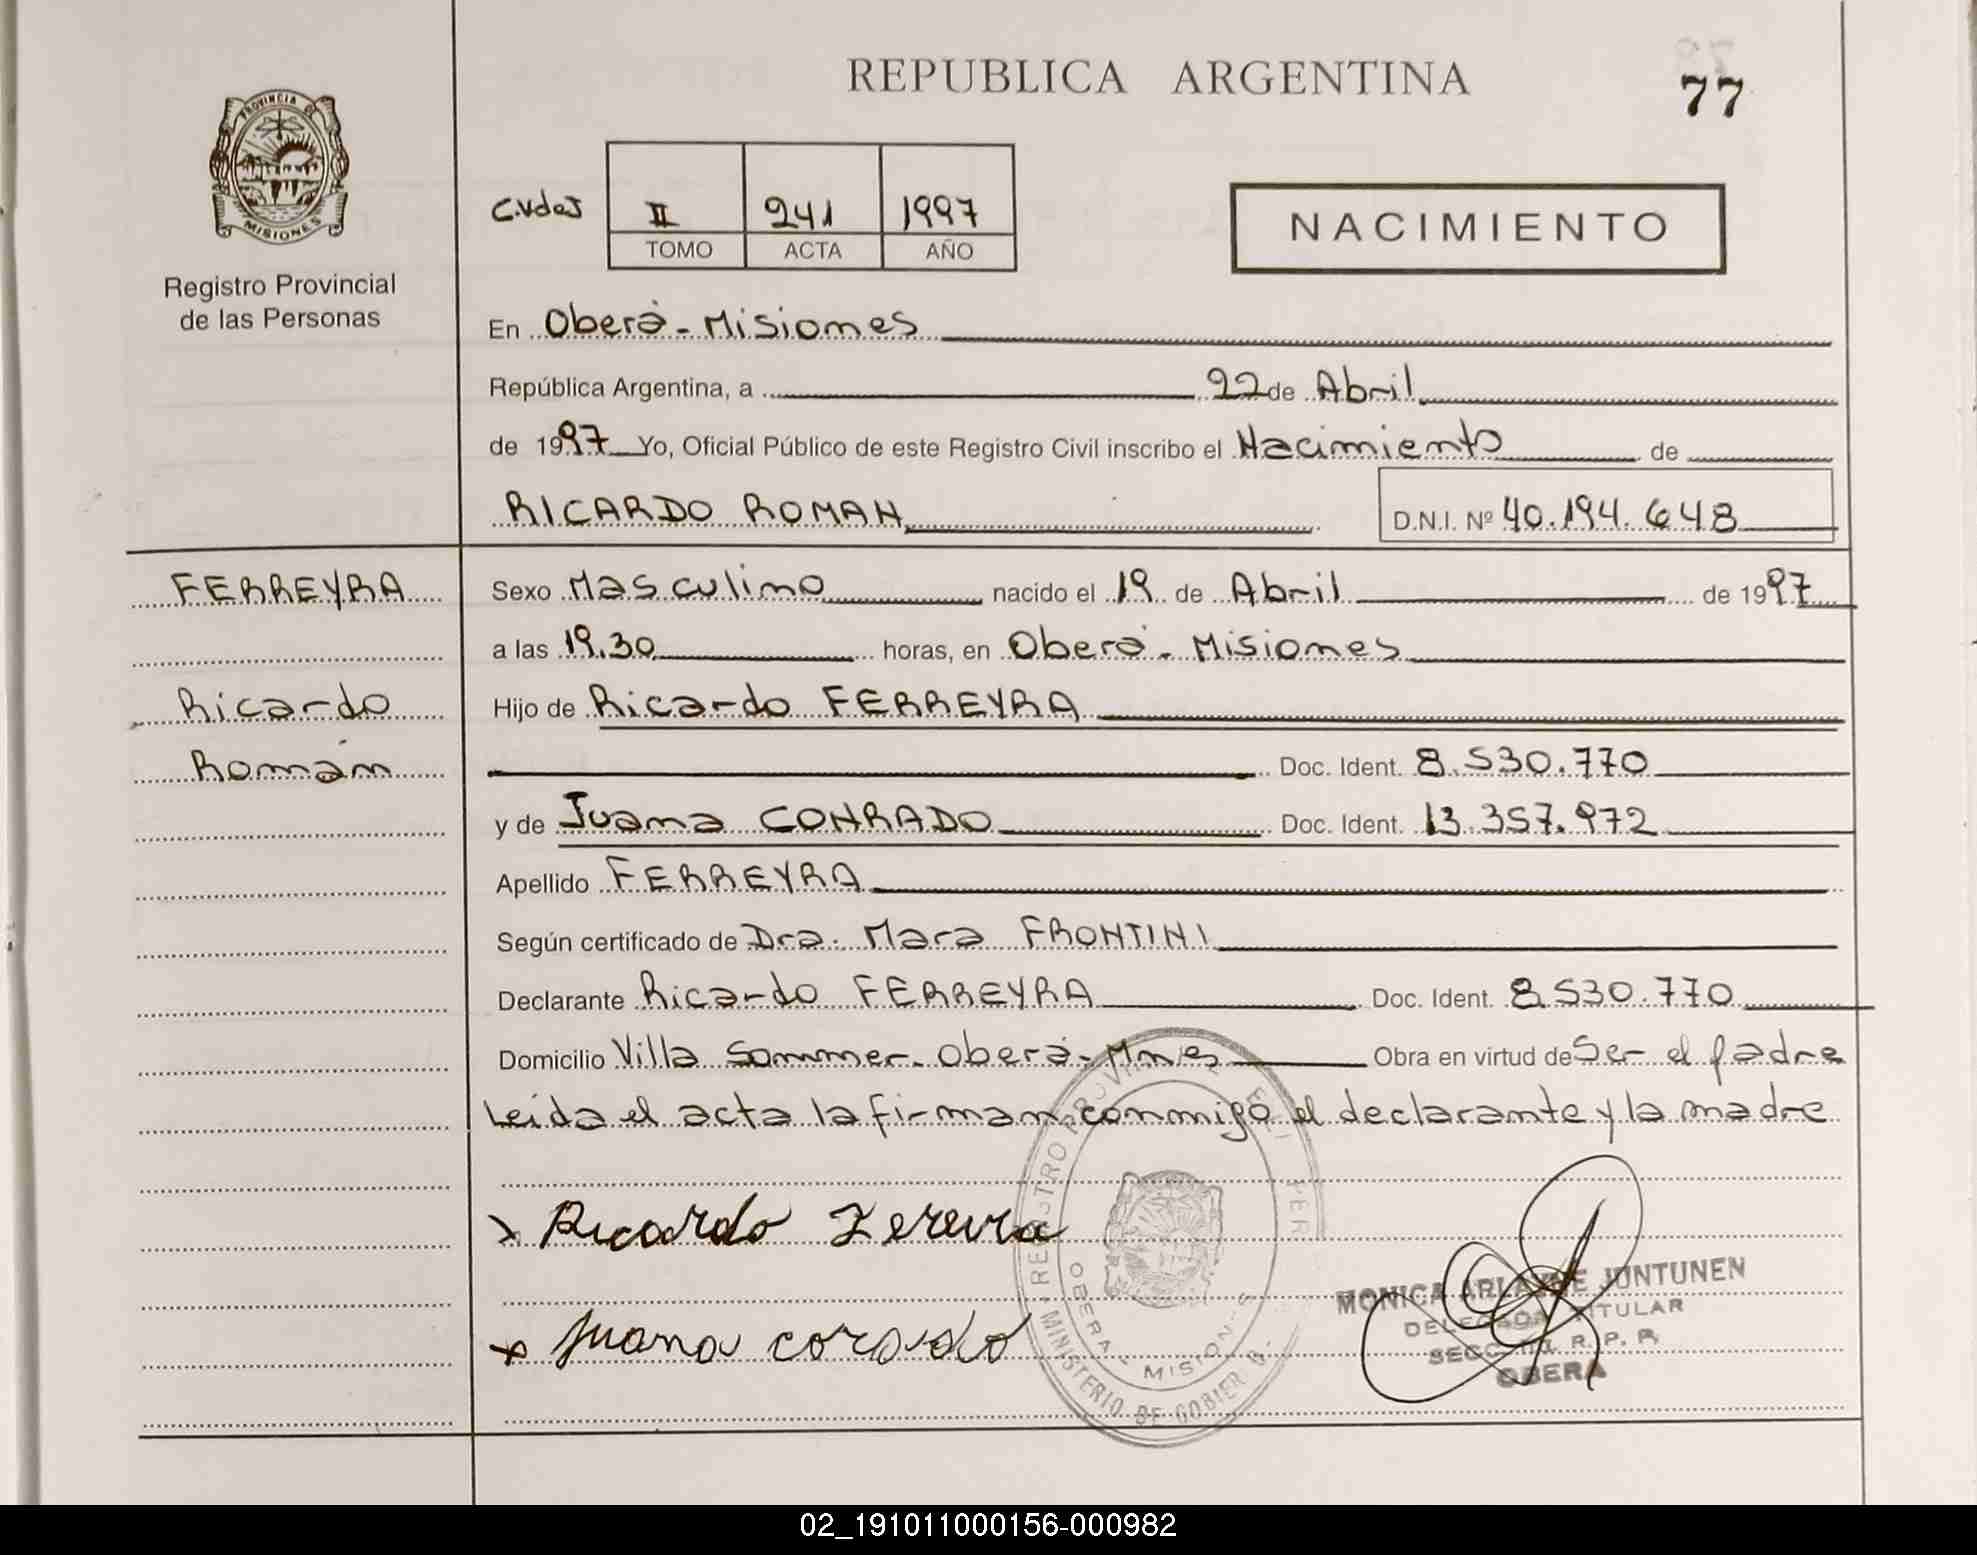 REPUBLICA ARGENTINA
77
PROVINCIA DE
MISIONES
Registro Provincial
de las Personas
II 241 1997
TOMO ACTA AÑO
NACIMIENTO
En Oberà - Misiones
República Argentina, a 22 de Abril
de 1997 Yo, Oficial Público de este Registro Civil inscribo el Nacimiento de
RICARDO ROMAN D.N.I. Nº 40.194.648
FERREYRA
Ricardo
Román
Sexo Masculino nacido el 19 de Abril de 1997
a las 19.30 horas, en Oberá - Misiones
Hijo de Ricardo FERREYRA
Doc. Ident. 8.530.770
y de Juana CONRADO Doc. Ident. 13.357.972
Apellido FERREYRA
Según certificado de Dra. Mara FRONTINI
Declarante Ricardo FERREYRA Doc. Ident. 8.530.770
Domicilio Villa Sommer - Oberá - Mnes Obra en virtud de Ser el padre
Leída el acta la firman conmigo el declarante y la madre
x Ricardo Fereira
x Juana corado
REGISTRO PROVINCIAL
OBERA - MISIONES
MINISTERIO DE GOBIERNO
MONICA JUNTUNEN
DELEGADA TITULAR
R. P. P.
OBERA
02_191011000156-000982